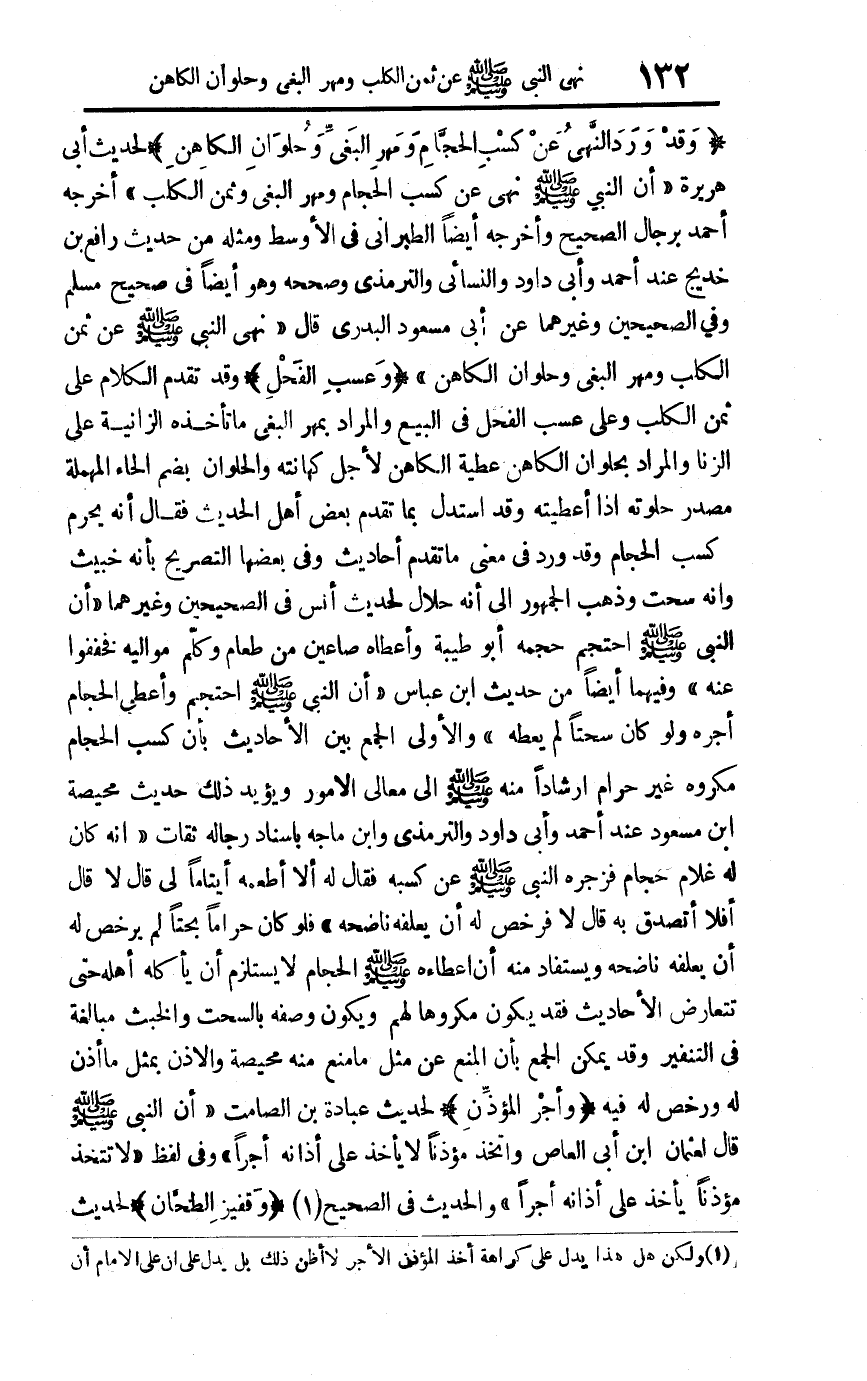 ١٣٢ نهى النبي ﷺ عن ثمن الكلب ومهر البغى وحلوان الكاهن
﴿ وَقدْ وَرَدَ النَّهىُ عَنْ كسْبِ الحجَّامِ وَمَهرِ البَغىِّ وَحُلوَانِ الكاهنِ ﴾ لحديث أبى
هريرة « أن النبي ﷺ نهى عن كسب الحجام ومهر البغى وثمن الكلب » أخرجه
أحمد برجال الصحيح وأخرجه أيضاً الطبرانى فى الأوسط ومثله من حديث رافع بن
خديج عند أحمد وأبى داود والنسائى والترمذى وصححه وهو أيضاً فى صحيح مسلم
وفي الصحيحين وغيرهما عن أبى مسعود البدرى قال « نهى النبي ﷺ عن ثمن
الكلب ومهر البغى وحلوان الكاهن » ﴿ وَعسبِ الفَحْلِ ﴾ وقد تقدم الكلام على
ثمن الكلب وعلى عسب الفحل فى البيع والمراد بمهر البغى ماتأخذه الزانية على
الزنا والمراد بحلوان الكاهن عطية الكاهن لأجل كهانته والحلوان بضم الحاء المهملة
مصدر حلوته اذا أعطيته وقد استدل بما تقدم بعض أهل الحديث فقال أنه يحرم
كسب الحجام وقد ورد فى معنى ماتقدم أحاديث وفى بعضها التصريح بأنه خبيث
وانه سحت وذهب الجمهور الى أنه حلال لحديث أنس فى الصحيحين وغيرهما «أن
النبى ﷺ احتجم حجمه أبو طيبة وأعطاه صاعين من طعام وكلّم مواليه فخففوا
عنه » وفيهما أيضاً من حديث ابن عباس « أن النبي ﷺ احتجم وأعطي الحجام
أجره ولو كان سحتاً لم يعطه » والأولى الجمع بين الأحاديث بأن كسب الحجام
مكروه غير حرام ارشاداً منه ﷺ الى معالى الامور ويؤيد ذلك حديث محيصة
ابن مسعود عند أحمد وأبى داود والترمذى وابن ماجه باسناد رجاله ثقات « انه كان
له غلام حجام فزجره النبي ﷺ عن كسبه فقال له ألا أطعمه أيتاماً لى قال لا قال
أفلا أتصدق به قال لا فرخص له أن يعلفه ناضحه » فلو كان حراماً بحتاً لم يرخص له
أن يعلفه ناضحه ويستفاد منه أن اعطاءه ﷺ الحجام لايستلزم أن يأكله أهله حتى
تتعارض الأحاديث فقد يكون مكروها لهم ويكون وصفه بالسحت والخبث مبالغة
فى التنفير وقد يمكن الجمع بأن المنع عن مثل مامنع منه محيصة والاذن بمثل ماأذن
له ورخص له فيه ﴿ وأجْرِ المؤذِّنِ ﴾ لحديث عبادة بن الصامت « أن النبى ﷺ
قال لعثمان ابن أبى العاص واتخذ مؤذناً لايأخذ على أذانه أجراً » وفى لفظ «لاتتخذ
مؤذناً يأخذ على أذانه أجراً » والحديث فى الصحيح (١) ﴿ وَقفيزِ الطحَّان ﴾ لحديث
(١) ولكن هل هذا يدل على كراهة أخذ المؤذن الأجر لاأظن ذلك بل يدل على ان على الامام أن